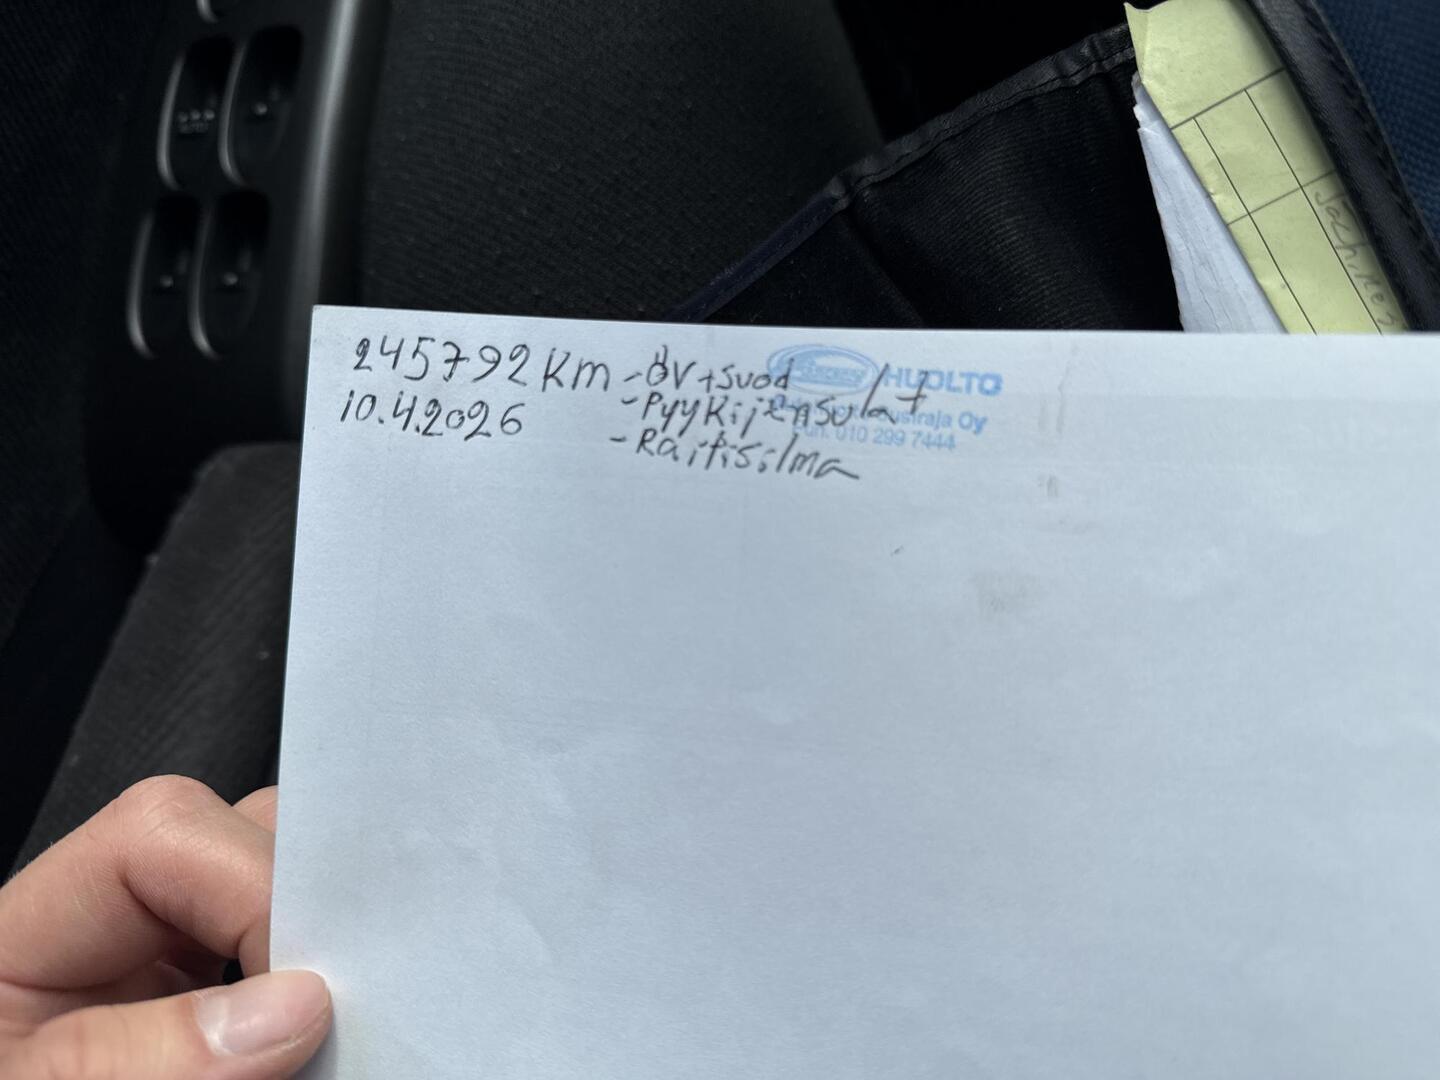 245792 km - ÖV+suod
10.4.2026 - Pyyhkijänsulat
- Raitisilma
HUOLTO
Oy
Puh. 010 299 7444